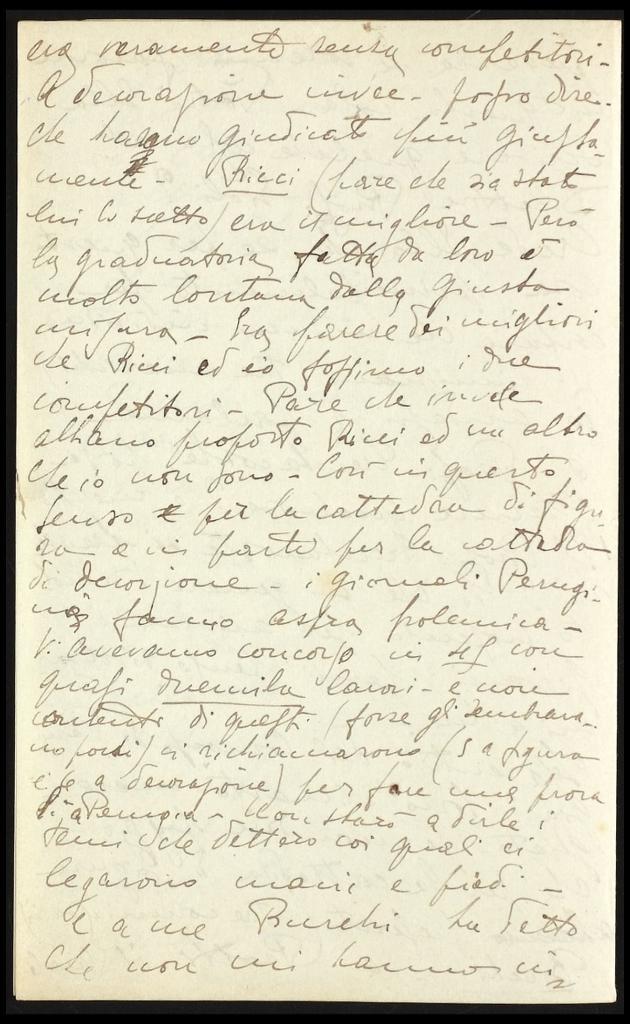 era veramente senza competitori -
A decorazione invece - posso dire -
che hanno giudicato più giusta-
mente - Ricci (pare che sia stato
lui lo scelto) era il migliore - Però
la graduatoria fatta da loro è
molto lontana dalla giusta
misura - Era parere dei migliori
che Ricci ed io fossimo i due
competitori - Pare che invece
abbiano proposto Ricci ed un altro
che io non sono - Così in questo
senso per la cattedra di figu-
ra e in parte per la cattedra
di decorzione - i giornali Perugi-
ni fanno aspra polemica -
Vi avevamo concorso in 45 con
quasi duemila lavori - e non
contenti di questi (forse gli sembrava-
no pochi) ci richiamarono (5 a figura
e 6 a decorazione) per fare una prova
a Perugia - Non starò a dirle i
temi che dettero coi quali ci
legarono mani e piedi -
e a me ha detto
che non mi hanno in